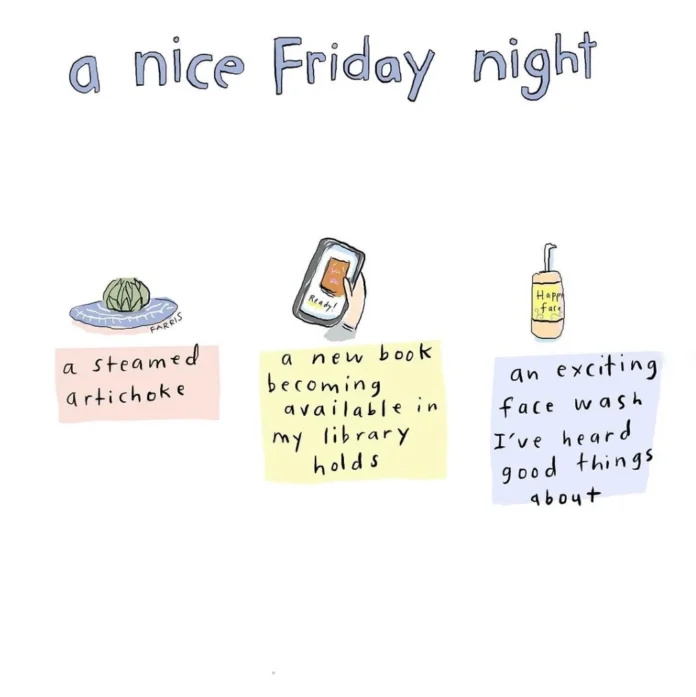 a nice Friday night
FARRIS
a steamed
artichoke
Ready!
a new book
becoming
available in
my library
holds
Happy
face
an exciting
face wash
I've heard
good things
about